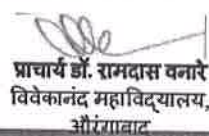 प्राचार्य डॉ. रामदास वनारे
विवेकानंद महाविद्यालय,
औरंगाबाद